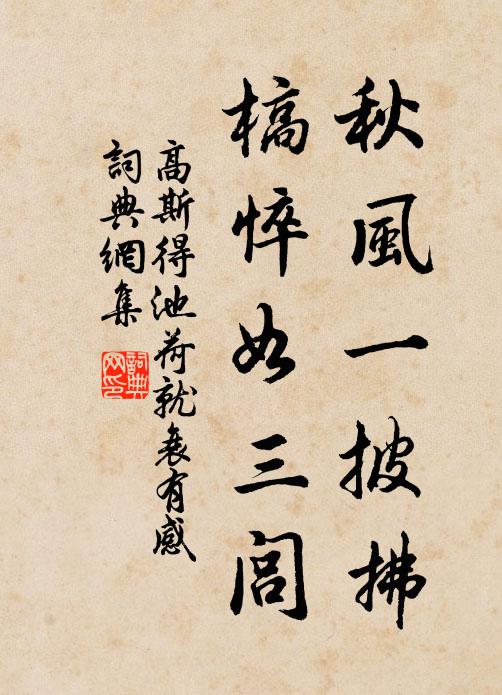 秋風一披拂
槁悴如三閭
高斯得池荷就衰有感
詞典網集
詞典網印